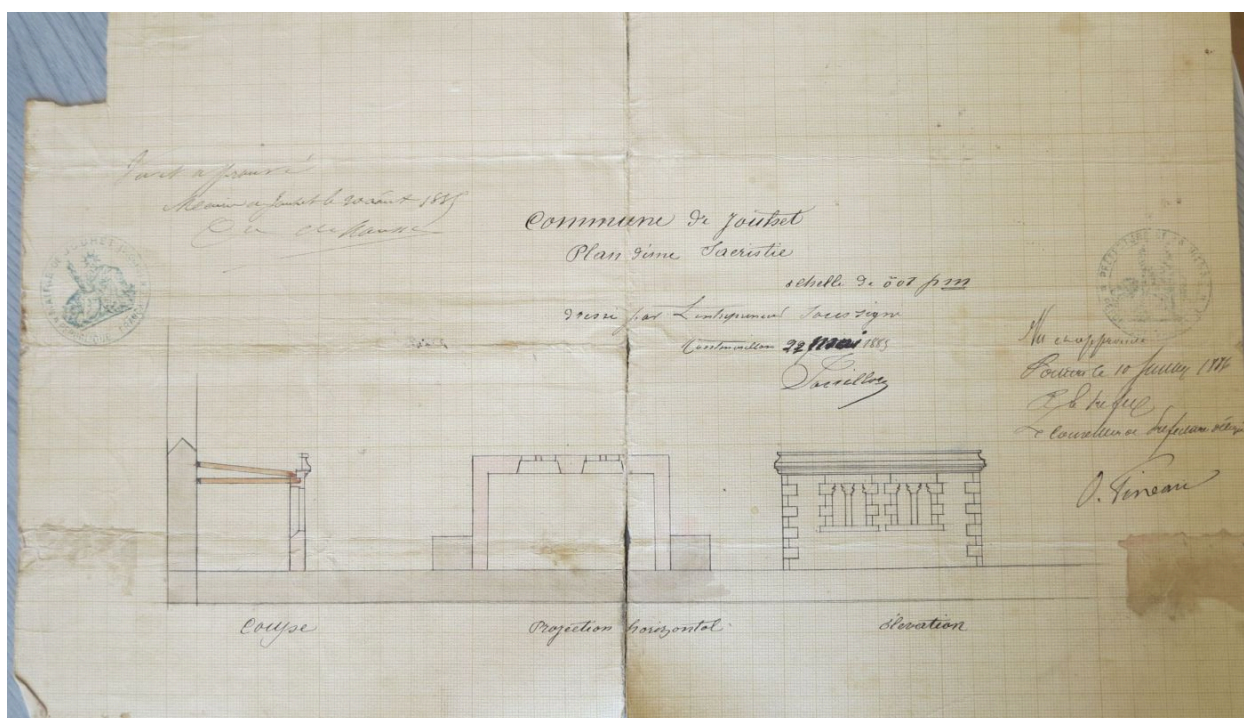 Vu et approuvé
Mairie de Jouhet le 20 août 1885
Commune de Jouhet
Plan d'une Sacristie
échelle de 0,01 p m
dressé par L'entrepreneur Soussigné
22 mai 1885
MAIRIE DE JOUHET
Vu et approuvé
Poitiers le 10 1886
P. le préfet
Le Conseiller de Préfecture délégué
O. Tineau
Coupe
Projection horizontal
élévation